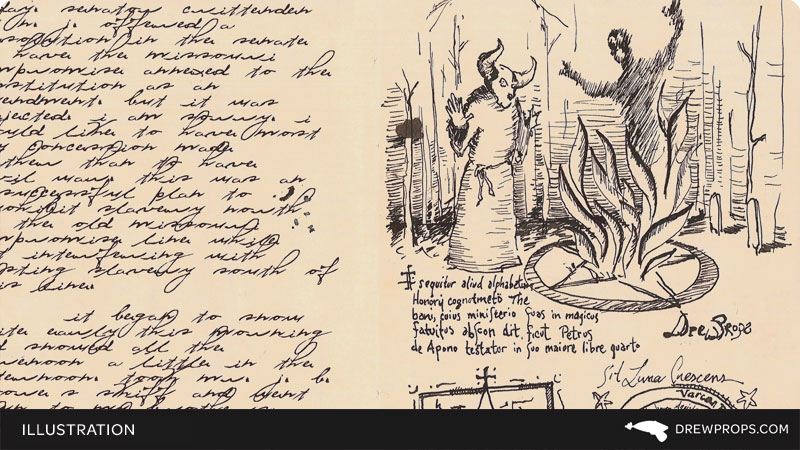 day. senator crittenden
j. offered a
solution in the senate
have the missouri
mpromise annexed to the
stitution as an
endment. but it was
jected. i am i
uld like to have most
y concession made
then than to have
vil way. this was an
successful plan to
ohibit slavery north
the old missouri
mpromise line while
t interfering with
sting slavery south of
is line.
it began to snow
ite early this morning
d snowed all the
renoon a little in the
ternoon. took mr. j. b.
skiff and went
sequitur aliud alphabetum
Honorij cognometo The
bani, cuius ministerio suas in magicus
fatuitus abscon dit, sicut Petrus
de Apono testator in suo maiore libre quarto
Drew Props
Luna Crescens
ILLUSTRATION
DREWPROPS.COM